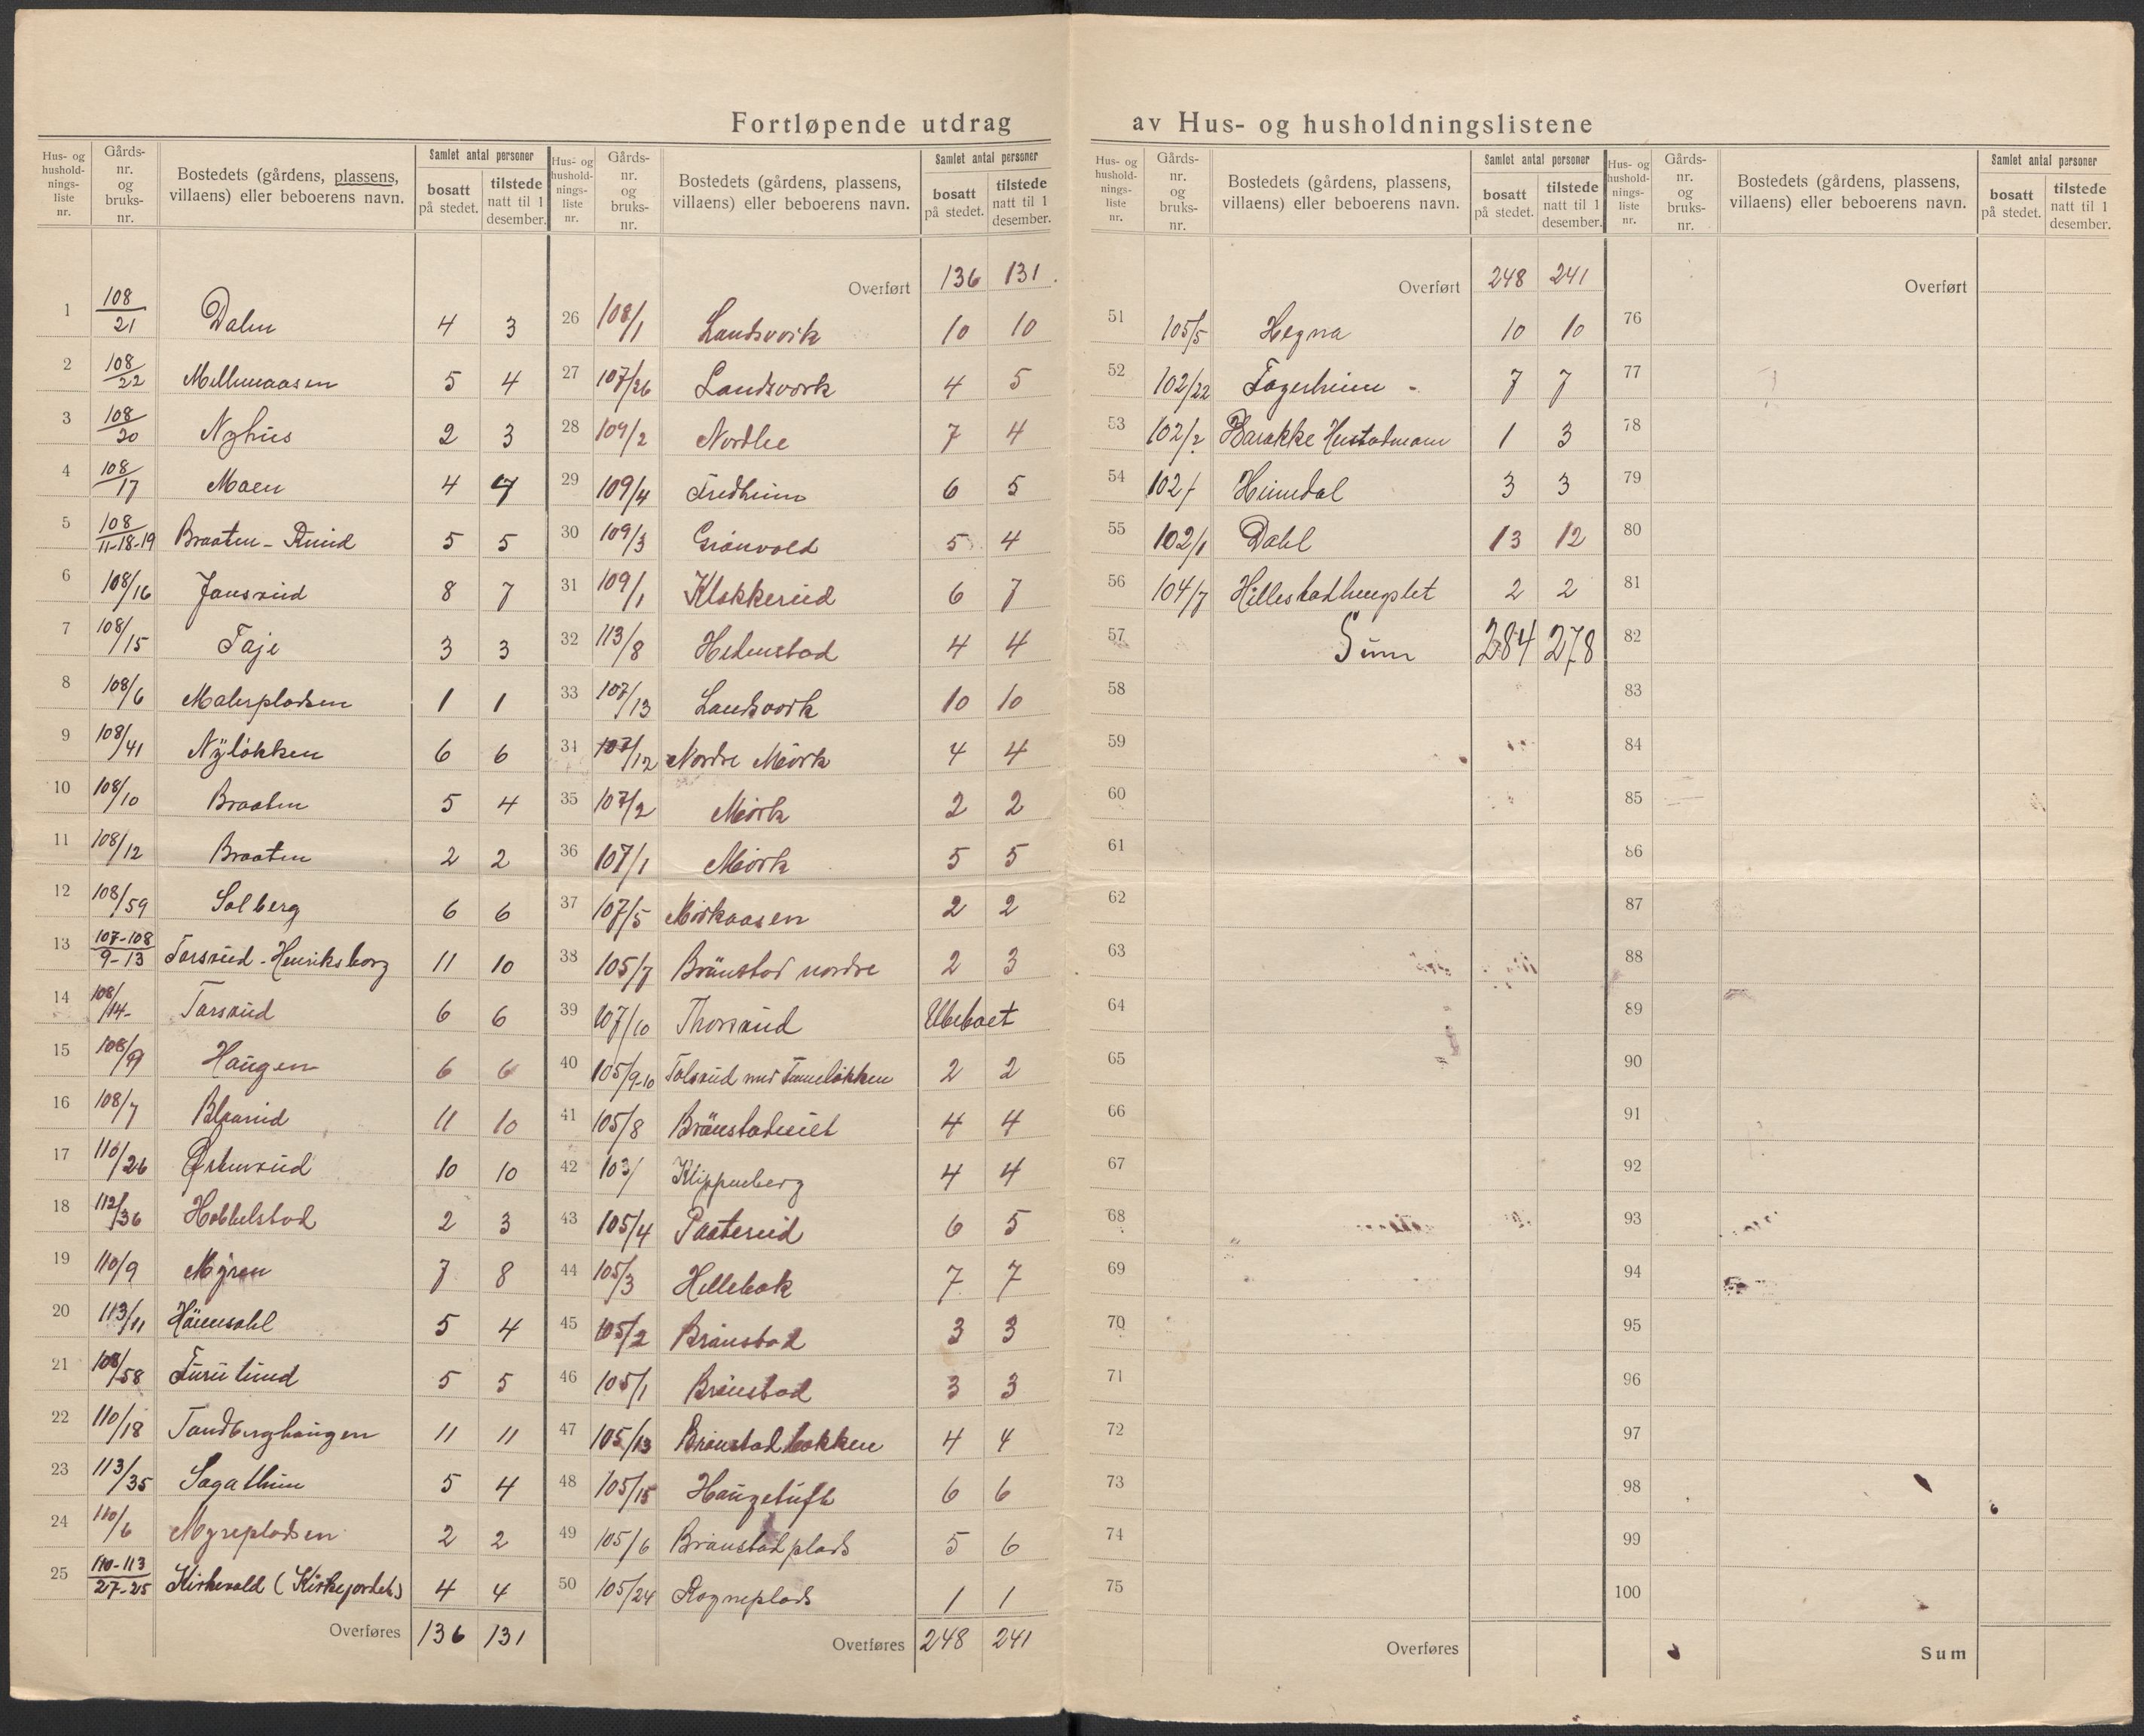 Fortløpende utdrag av Hus- og husholdningslistene
Hus- og hushold-nings-liste nr. Gårds-nr. og bruks-nr. Bostedets (gårdens, plassens, villaens) eller beboerens navn. Samlet antal personer bosatt på stedet. tilstede natt til 1 desember.
1 108/21 Dalen 4 3
2 108/22 Mellumaasen 5 4
3 108/20 Nyhus 2 3
4 108/17 Moen 4 4
5 108/11-18-19 Braaten - Ruud 5 5
6 108/16 Jansrud 8 7
7 108/15 Faje 3 3
8 108/6 Malerpladsen 1 1
9 108/41 Nyløkken 6 6
10 108/10 Braaten 5 4
11 108/12 Braaten 2 2
12 108/59 Solberg 6 6
13 107-108/9-13 Torsrud - Henriksborg 11 10
14 108/14 Torsrud 6 6
15 108/9 Haugen 6 6
16 108/7 Blaarud 11 10
17 110/26 Østensrud 10 10
18 112/36 Hobbelstad 2 3
19 110/9 Myren 7 8
20 113/11 5 4
21 108/58 Furulund 5 5
22 110/18 Tandberghaugen 11 11
23 113/35 Sagathun 5 4
24 110/6 Myrepladsen 2 2
25 110-113/27-25 Kirkevold (Kirkejordet) 4 4
Overføres 136 131
Hus- og hushold-nings-liste nr. Gårds-nr. og bruks-nr. Bostedets (gårdens, plassens, villaens) eller beboerens navn. Samlet antal personer bosatt på stedet. tilstede natt til 1 desember.
Overført 136 131
26 108/1 Landsverk 10 10
27 107/26 Landsverk 4 5
28 109/2 Nordlie 7 4
29 109/4 Fredheim 6 5
30 109/3 Grönvold 5 4
31 109/1 Klokkerud 6 7
32 113/8 Hedenstad 4 4
33 107/13 Landsverk 10 10
34 107/12 Nordre Mörk 4 4
35 107/2 Mörk 2 2
36 107/1 Mörk 5 5
37 107/5 Mörkaasen 2 2
38 105/7 Brönstad nordre 2 3
39 107/10 Thorsrud Ubeboet
40 105/9-10 Tolsrud med 2 2
41 105/8 4 4
42 103/ Klippenberg 4 4
43 105/4 Paaterud 6 5
44 105/3 Hellebæk 7 7
45 105/2 Brönstad 3 3
46 105/1 Brönstad 3 3
47 105/13 Brönstadbakken 4 4
48 105/15 Haugetuft 6 6
49 105/6 Brönstadplads 5 6
50 105/24 Rogneplads 1 1
Overføres 248 241
Hus- og hushold-nings-liste nr. Gårds-nr. og bruks-nr. Bostedets (gårdens, plassens, villaens) eller beboerens navn. Samlet antal personer bosatt på stedet. tilstede natt til 1 desember.
Overført 248 241
51 105/5 Hegna 10 10
52 102/22 Fagerheim - 7 7
53 102/2 Barakke 1 3
54 102/ Heimdal 3 3
55 102/1 Dahl 13 12
56 104/7 2 2
57 Sum 284 278
58
59
60
61
62
63
64
65
66
67
68
69
70
71
72
73
74
75
Overføres
Hus- og hushold-nings-liste nr. Gårds-nr. og bruks-nr. Bostedets (gårdens, plassens, villaens) eller beboerens navn. Samlet antal personer bosatt på stedet. tilstede natt til 1 desember.
Overført
76
77
78
79
80
81
82
83
84
85
86
87
88
89
90
91
92
93
94
95
96
97
98
99
100
Sum